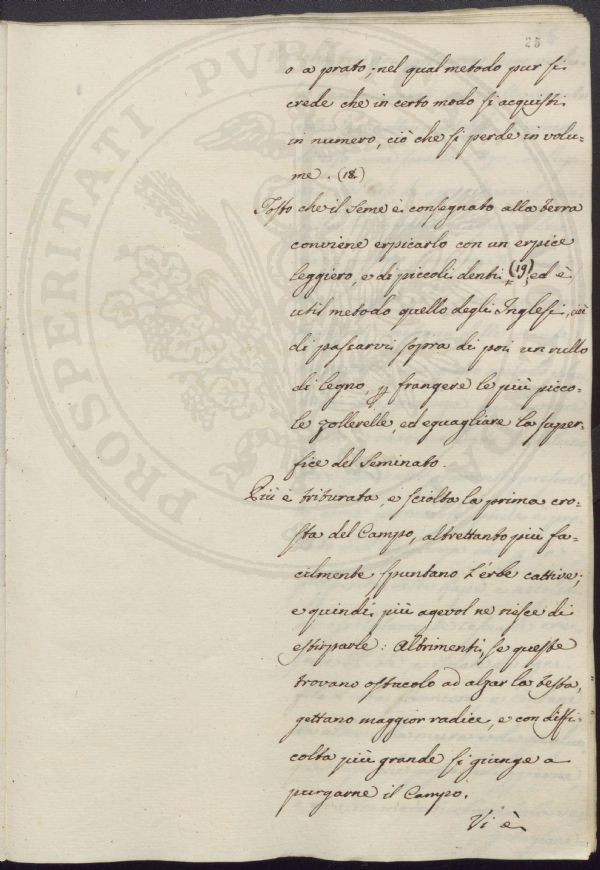 25
o a prato; nel qual metodo pur si
crede che in certo modo si acquisti
in numero, ciò che si perde in volu-
me. (18.)
Tosto che il Seme è consegnato alla terra
conviene erpicarlo con un erpice
leggiero, e di piccoli denti (19), ed è
util metodo quello degli Inglesi, cioè
di passarvi sopra di poi un rullo
di legno, p frangere le più picco-
le zollerelle, ed eguagliare la super-
fice del Seminato.
Più è triturata, e sciolta la prima cro-
sta del Campo, altrettanto più fa-
cilmente spuntano l'erbe cattive;
e quindi più agevol ne riesce di
estirparle: Altrimenti, se queste
trovano ostacolo ad alzar la testa,
gettano maggior radice, e con diffi-
coltà più grande si giunge a
purgarne il Campo.
Vi è
PROSPERITATI PVBLI